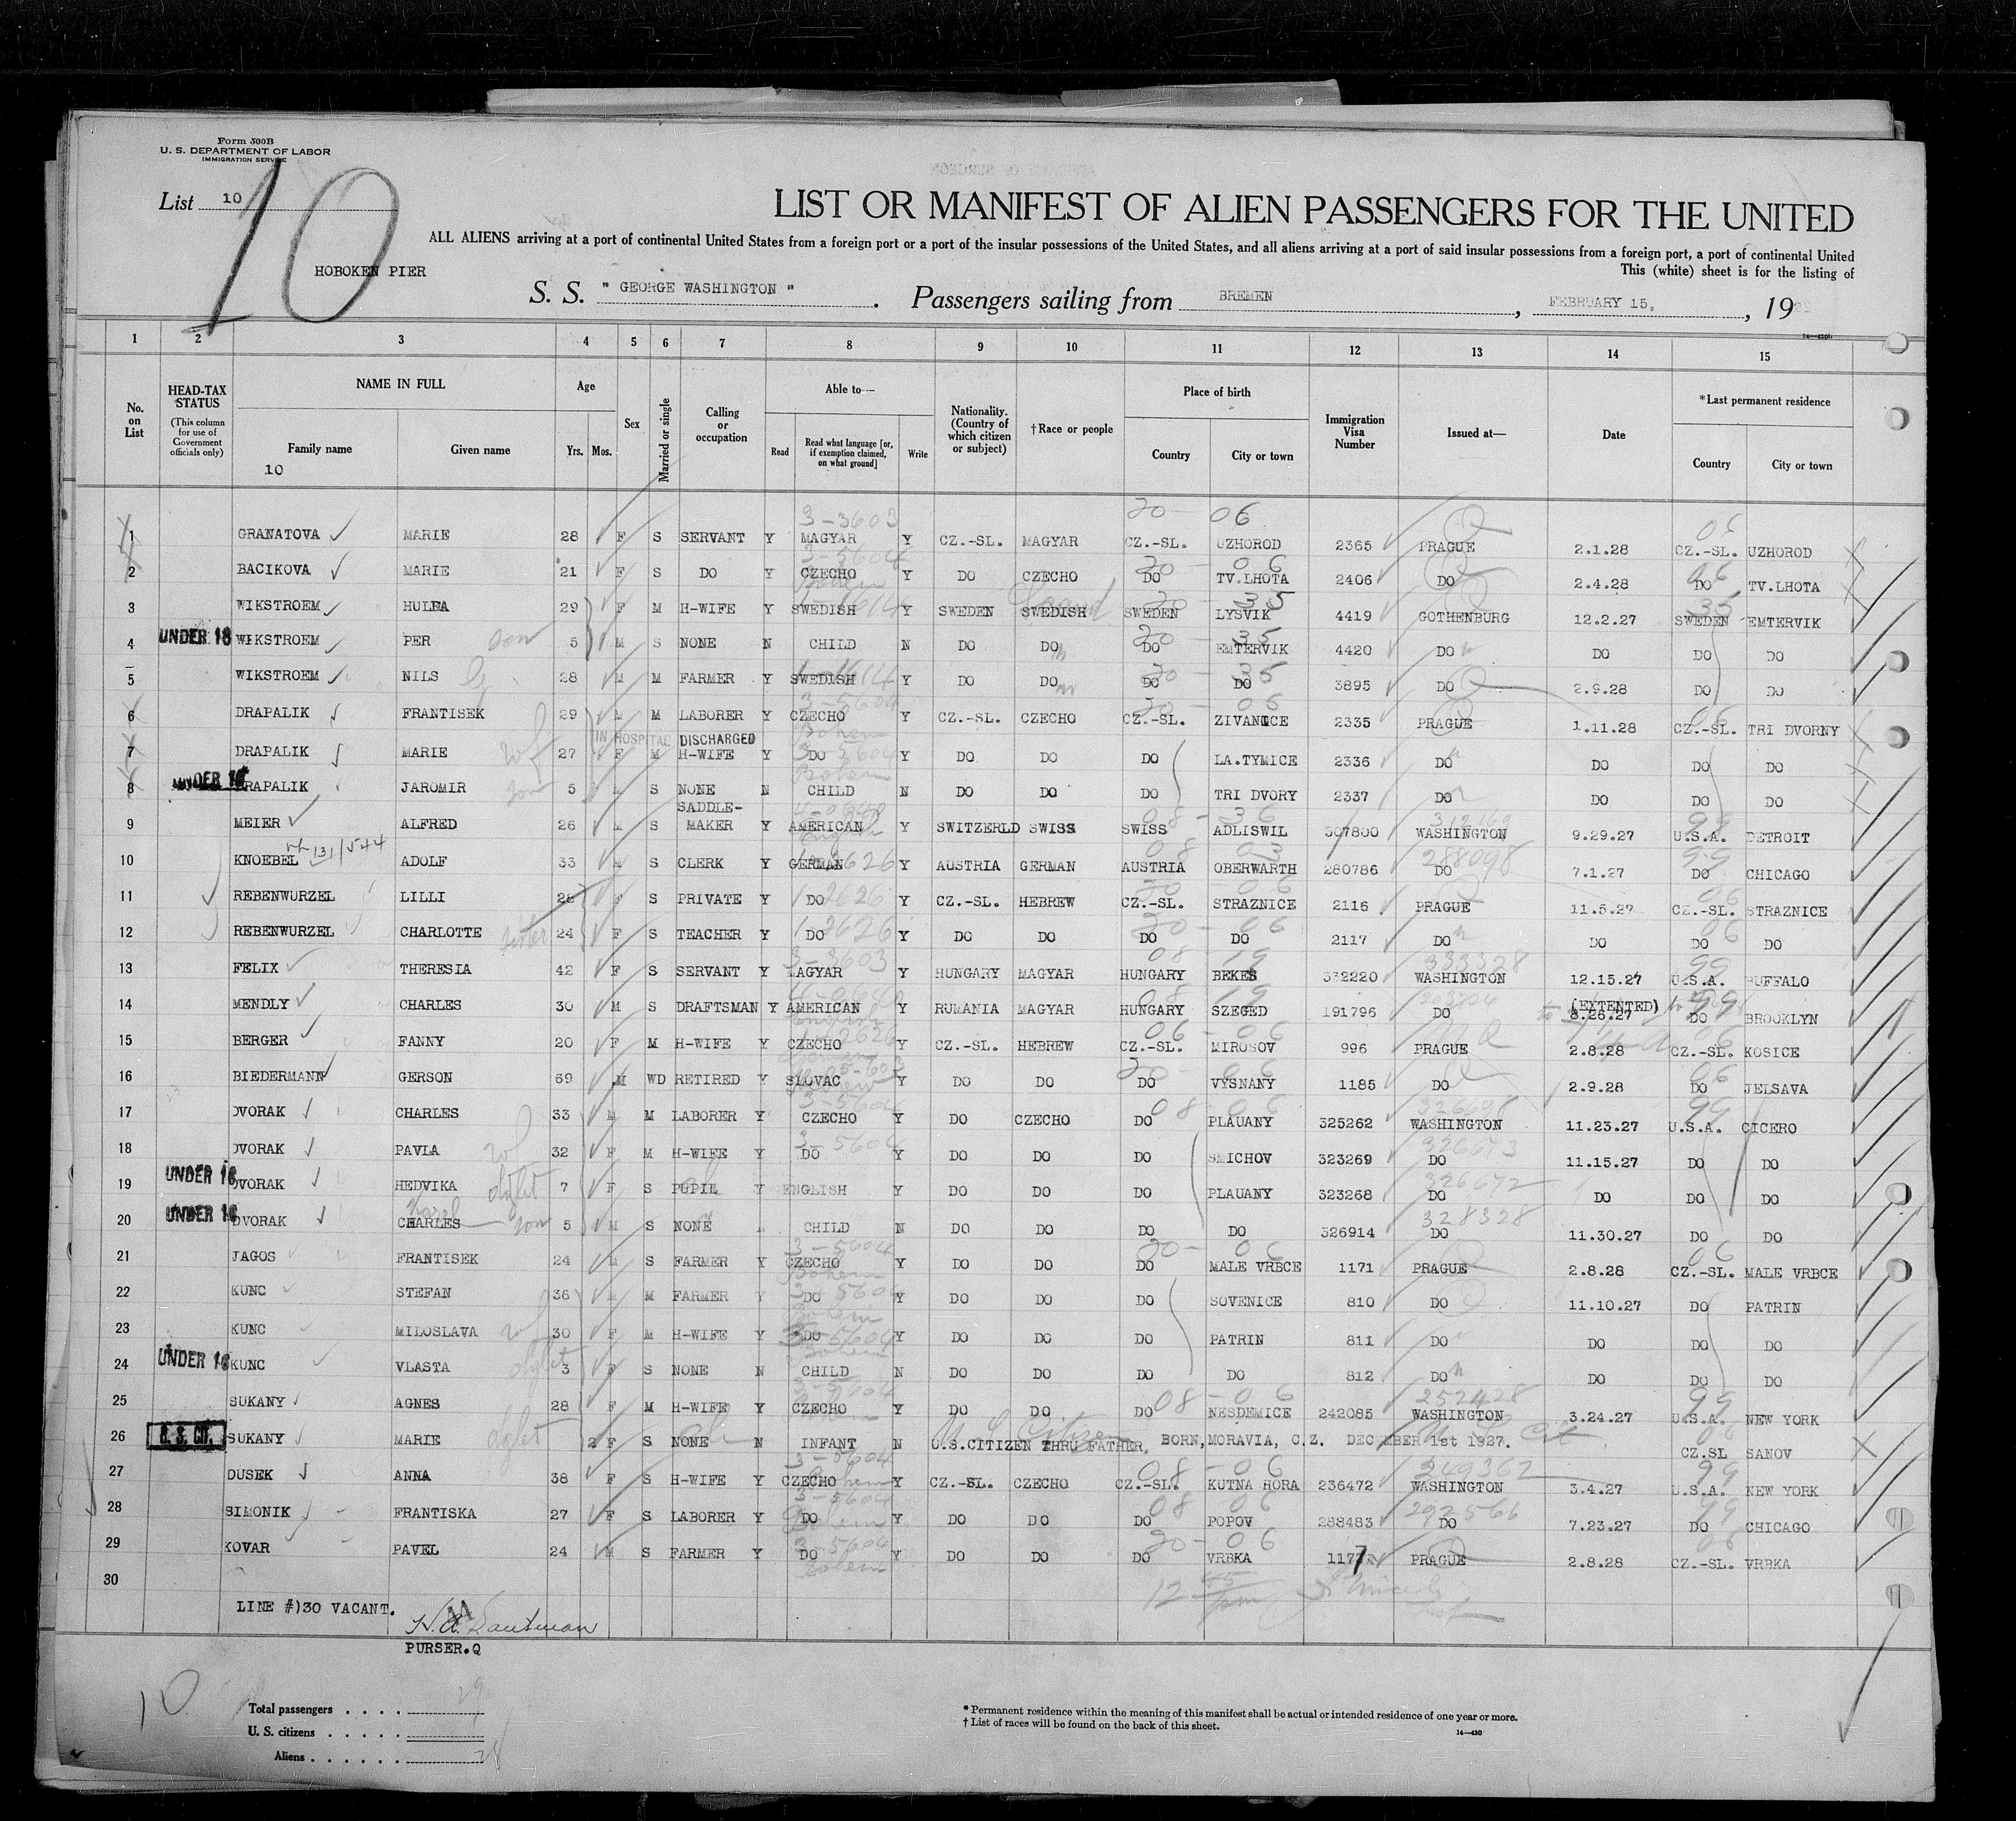 Form 500B
U. S. DEPARTMENT OF LABOR
IMMIGRATION SERVICE
List 10
10
LIST OR MANIFEST OF ALIEN PASSENGERS FOR THE UNITED
ALL ALIENS arriving at a port of continental United States from a foreign port or a port of the insular possessions of the United States, and all aliens arriving at a port of said insular possessions from a foreign port, a port of continental United
HOBOKEN PIER
This (white) sheet is for the listing of
S. S. " GEORGE WASHINGTON " . Passengers sailing from BREMEN , FEBRUARY 15, , 19
1 2 3 4 5 6 7 8 9 10 11 12 13 14 15
No. on List
HEAD-TAX STATUS
(This column for use of Government officials only)
NAME IN FULL
Family name
Given name
10
Age
Yrs. Mos.
Sex
Married or single
Calling or occupation
Able to—
Read
Read what language [or, if exemption claimed, on what ground]
Write
Nationality. (Country of which citizen or subject)
†Race or people
Place of birth
Country
City or town
Immigration Visa Number
Issued at—
Date
*Last permanent residence
Country
City or town
1 GRANATOVA MARIE 28 F S SERVANT Y MAGYAR Y CZ.-SL. MAGYAR CZ.-SL. UZHOROD 2365 PRAGUE 2.1.28 CZ.-SL. UZHOROD
2 BACIKOVA MARIE 21 F S DO Y CZECHO Y DO CZECHO DO TV.LHOTA 2406 DO 2.4.28 DO TV.LHOTA
3 WIKSTROEM 29 F M H-WIFE Y SWEDISH Y SWEDEN SWEDISH SWEDEN LYSVIK 4419 GOTHENBURG 12.2.27 SWEDEN EMTERVIK
4 UNDER 16 WIKSTROEM PER son 5 M S NONE N CHILD N DO DO DO EMTERVIK 4420 DO DO DO DO
5 WIKSTROEM NILS 28 M M FARMER Y SWEDISH Y DO DO DO DO 3895 DO 2.9.28 DO DO
6 DRAPALIK FRANTISEK 29 M M LABORER Y CZECHO Y CZ.-SL. CZECHO CZ.-SL. 2335 PRAGUE 1.11.28 CZ.-SL. TRI DVORNY
IN HOSPITAL DISCHARGED
7 DRAPALIK MARIE wf 27 F M H-WIFE Y DO Y DO DO DO LA.TYMICE 2336 DO DO DO DO
8 UNDER 16 DRAPALIK JAROMIR son 5 M S NONE N CHILD N DO DO DO TRI DVORY 2337 DO DO DO DO
9 MEIER ALFRED 26 M S SADDLE-MAKER Y AMERICAN Y SWITZERLD SWISS SWISS ADLISWIL 307800 WASHINGTON 9.29.27 U.S.A. DETROIT
10 KNOEBEL ADOLF 33 M S CLERK Y GERMAN Y AUSTRIA GERMAN AUSTRIA OBERWARTH 280786 DO 7.1.27 DO CHICAGO
11 REBENWURZEL LILLI 28 F S PRIVATE Y DO Y CZ.-SL. HEBREW CZ.-SL. STRAZNICE 2116 PRAGUE 11.5.27 CZ.-SL. STRAZNICE
12 REBENWURZEL CHARLOTTE sister 24 F S TEACHER Y DO Y DO DO DO DO 2117 DO DO DO DO
13 FELIX THERESIA 42 F S SERVANT Y MAGYAR Y HUNGARY MAGYAR HUNGARY BEKES 332220 WASHINGTON 12.15.27 U.S.A. BUFFALO
14 MENDLY CHARLES 30 M S DRAFTSMAN Y AMERICAN Y RUMANIA MAGYAR HUNGARY SZEGED 191796 DO (EXTENTED) 8.26.27 DO BROOKLYN
15 BERGER FANNY 20 F M H-WIFE Y CZECHO Y CZ.-SL. HEBREW CZ.-SL. MIROSOV 996 PRAGUE 2.8.28 CZ.-SL. KOSICE
16 BIEDERMANN GERSON 69 M WD RETIRED Y SLOVAC Y DO DO DO VYSNANY 1185 DO 2.9.28 DO JELSAVA
17 DVORAK CHARLES 33 M M LABORER Y CZECHO Y DO CZECHO DO PLAUANY 325262 WASHINGTON 11.23.27 U.S.A. CICERO
18 DVORAK PAVLA wf 32 F M H-WIFE Y DO Y DO DO DO SMICHOV 323269 DO 11.15.27 DO DO
19 UNDER 16 DVORAK HEDVIKA 7 F S PUPIL Y ENGLISH Y DO DO DO PLAUANY 323268 DO DO DO DO
20 UNDER 16 DVORAK CHARLES Karel son 5 M S NONE CHILD N DO DO DO DO 326914 DO 11.30.27 DO DO
21 JAGOS FRANTISEK 24 M S FARMER Y CZECHO Y DO DO DO MALE VRBCE 1171 PRAGUE 2.8.28 CZ.-SL. MALE VRBCE
22 KUNC STEFAN 36 M M FARMER Y DO Y DO DO DO SOVENICE 810 DO 11.10.27 DO PATRIN
23 KUNC MILOSLAVA wf 30 F M H-WIFE Y DO Y DO DO DO PATRIN 811 DO DO DO DO
24 UNDER 16 KUNC VLASTA 3 F S NONE N CHILD N DO DO DO DO 812 DO DO DO DO
25 SUKANY AGNES 28 F M H-WIFE Y CZECHO Y DO DO DO NESDEMICE 242085 WASHINGTON 3.24.27 U.S.A. NEW YORK
26 U. S. CIT. SUKANY MARIE 2 F S NONE N INFANT N U.S.CITIZEN THRU FATHER, BORN,MORAVIA, C.Z. DECEMBER 1st 1927. CZ.SL SANOV
27 DUSEK ANNA 38 F S H-WIFE Y CZECHO Y CZ.-SL. CZECHO CZ.-SL. KUTNA HORA 236472 WASHINGTON 3.4.27 U.S.A. NEW YORK
28 SIMONIK FRANTISKA 27 F S LABORER Y DO Y DO DO DO POPOV 288483 DO 7.23.27 DO CHICAGO
29 KOVAR PAVEL 24 M S FARMER Y DO Y DO DO DO VRBKA 1177 PRAGUE 2.8.28 CZ.-SL. VRBKA
30
LINE #)30 VACANT.
PURSER.Q
10
Total passengers . . . . 29
U. S. citizens . . . . .
Aliens . . . . . . 28
* Permanent residence within the meaning of this manifest shall be actual or intended residence of one year or more.
† List of races will be found on the back of this sheet.
14—430